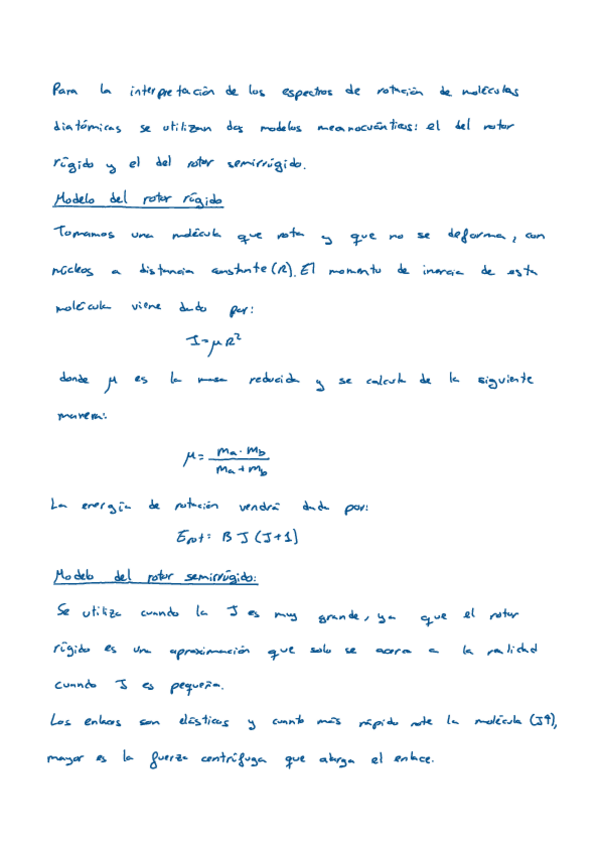 Para la interpretación de los espectros de rotación de moléculas
diatómicas se utilizan dos modelos mecanocuánticos: el del rotor
rígido y el del rotor semirrígido.
Modelo del rotor rígido
Tomamos una molécula que rota y que no se deforma, con
núcleos a distancia constante (R). El momento de inercia de esta
molécula viene dado por:
I=μR²
donde μ es la masa reducida y se calcula de la siguiente
manera:
μ = ma · mb / ma + mb
La energía de rotación vendrá dada por:
Erot = B J (J+1)
Modelo del rotor semirrígido:
Se utiliza cuando la J es muy grande, ya que el rotor
rígido es una aproximación que solo se acerca a la realidad
cuando J es pequeña.
Los enlaces son elásticos y cuanto más rápido rote la molécula (J↑),
mayor es la fuerza centrífuga que alarga el enlace.